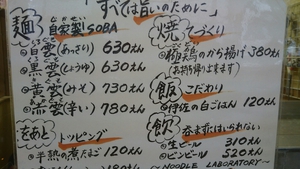 すべては旨いのために
麺 自家製SOBA
白雲(あっさり) 630えん
黒雲(しょうゆ) 630えん
黄雲(みそ) 730えん
赤雲(辛い) 780えん
あと トッピング
半熟の煮たまご 120えん
焼 てづくり
鶏のから揚げ 380えん
お持ち帰り出来ます
飯 こだわり
伊佐の白ごはん 120えん
飲 呑まずにはいられない
生ビール 310えん
ビンビール 520えん
~NOODLE LABORATORY~